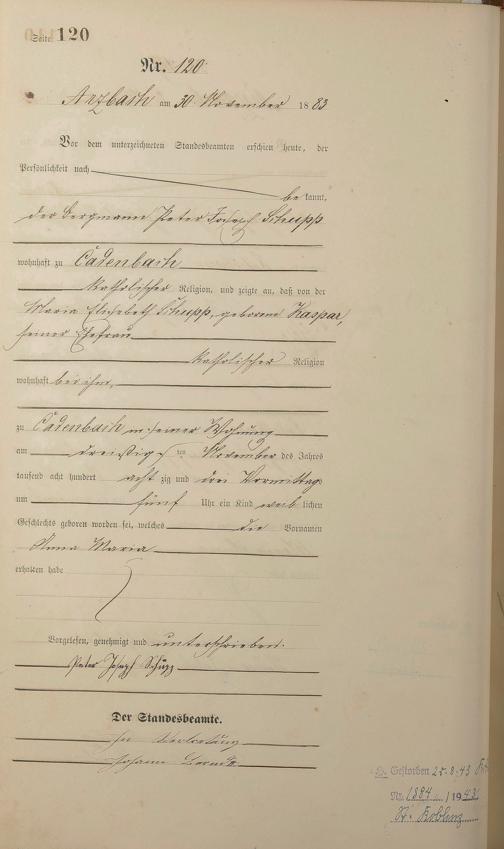 Seite 120
Nr. 120.
Arzbach am 30 November 1883
Vor dem unterzeichneten Standesbeamten erschien heute, der
Persönlichkeit nach
be kannt,
der Bergmann Peter Joseph Schupp
wohnhaft zu Cadenbach
katholischer Religion, und zeigte an, daß von der
Maria Elisabeth Schupp, geborene Kaspar,
seiner Ehefrau
katholischer Religion
wohnhaft bei ihm,
zu Cadenbach in seiner Wohnung
am dreißigsten November des Jahres
tausend acht hundert acht zig und drei Vormittags
um fünf Uhr ein Kind weib lichen
Geschlechts geboren worden sei, welches die Vornamen
Anna Maria
erhalten habe
Vorgelesen, genehmigt und unterschrieben.
Peter Joseph Schupp
Der Standesbeamte.
In Vertretung
Johann
Gestorben 25.8.43
Nr. 1384 / 1943
St. Koblenz